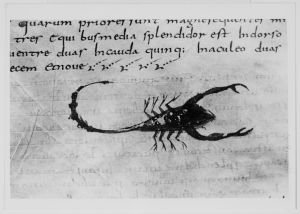 quarum priores sunt magnesequentes mi
tres equibusmedia splendidor est Indorso
uentre duas Incauda quinq; Inaculeo duas
ecem etnoue